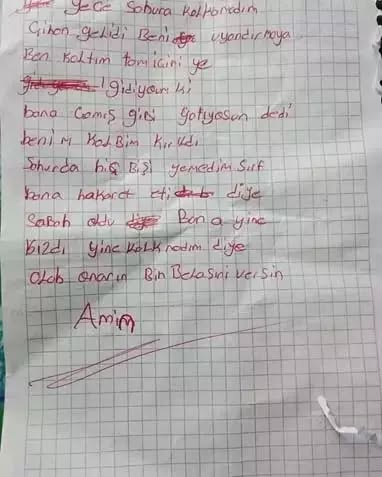 gece Sabura kalkanadım
Cihan geldi Beni uyandırmaya
Ben kaltım tam icini ye
gidiyour ki
bana Camış gibi yatıyosun dedi
benim kalBim kırıldı
Sahurda hiç Bişi yemedim Sırf
bana hakaret eti diye
Sabah oldu Bana yine
kızdı yine kalkmadım diye
Olah onarın Bin Belasını versin
Amim